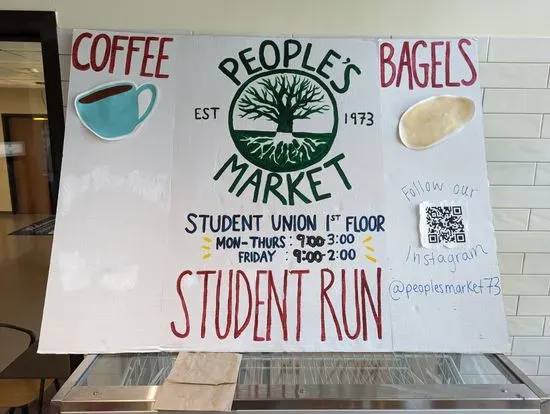 COFFEE
PEOPLE'S
MARKET
EST 1973
BAGELS
STUDENT UNION 1ST FLOOR
MON-THURS: 9:00-3:00
FRIDAY: 9:00-2:00
STUDENT RUN
Follow our
Instagram
@peoplesmarket73